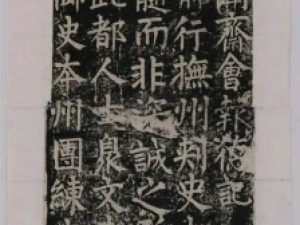 齋會報德記
行撫州刺史
而非誠之
都人士泉文
御史本州團練